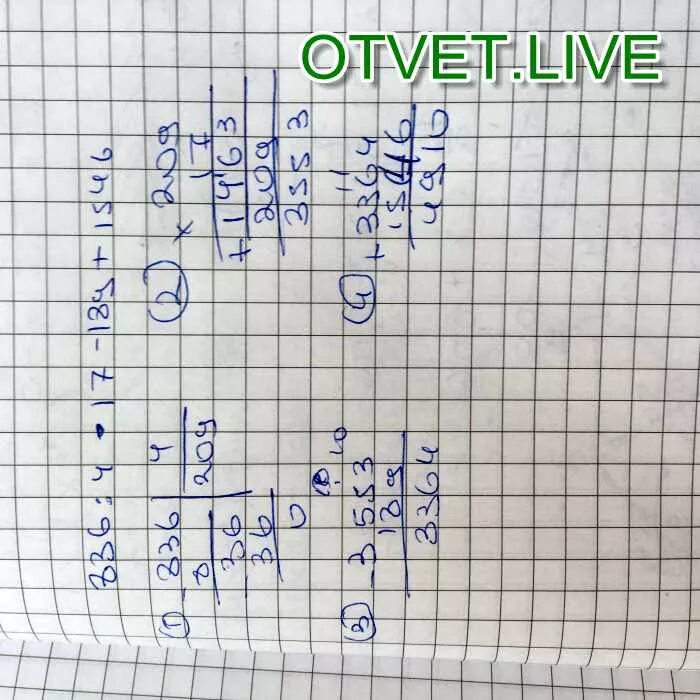 OTVET.LIVE
836 : 4 • 17 - 189 + 1546
① - 836 | 4
8 | 209
- 36
36
0
② × 209
17
+ 1463
209
3553
③ - 3553
189
3364
④ + 3364
1546
4910